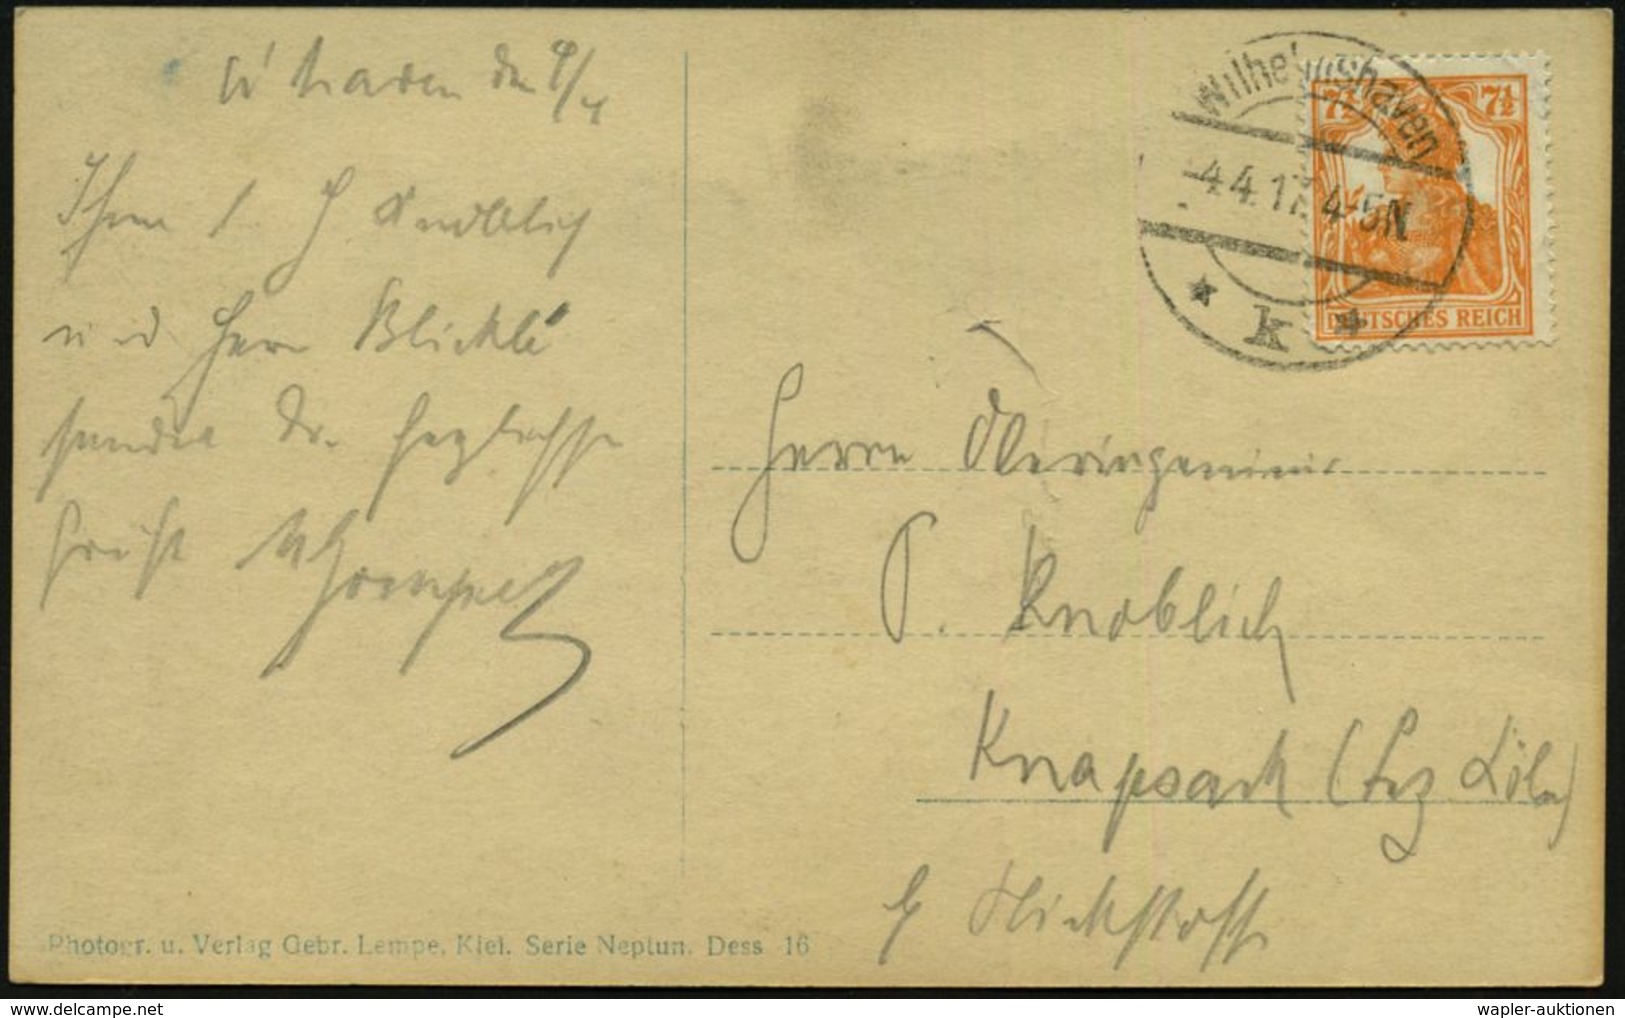 W'haven den 4/4
Ihnen, H Knoblich
und Herrn Blicklé
sendet die herzlichsten
Grüße
Wilhelmshaven
-4.4.17. 4-5N
* k *
7½ 7½
DEUTSCHES REICH
Herrn Oberingenieur
P. Knoblich
Knapsack (Bez Köln)
Stickstoff
Photogr. u. Verlag Gebr. Lempe, Kiel. Serie Neptun. Dess 16
delcampe.net
wapler-auktionen